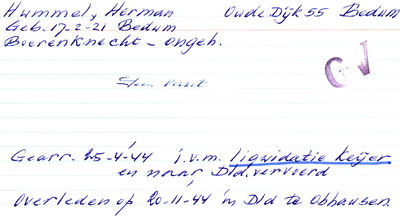 Hummel, Herman Oude Dijk 55 Bedum
Geb. 17-2-21 Bedum
Boerenknecht - ongeh.
GV
Gearr. 25-4-44 i.v.m. liqwidatie Keijer
en naar Dld. vervoerd
Overleden op 20-11-44 in Dld te Obhausen.